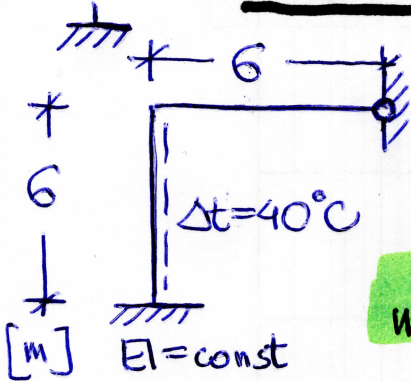 6
6
Δt=40°C
[m] EI=const